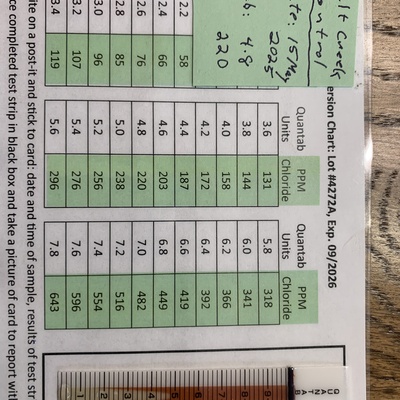 ersion Chart: Lot #4272A, Exp. 09/2026
lt Check
ontrol
te: 15/May
2025
b: 4.8
220
Quantab Units PPM Chloride Quantab Units PPM Chloride
3.6 131 5.8 318
3.8 144 6.0 341
4.0 158 6.2 366
4.2 172 6.4 392
2.2 58 4.4 187 6.6 419
2.4 66 4.6 203 6.8 449
2.6 76 4.8 220 7.0 482
2.8 85 5.0 238 7.2 516
3.0 96 5.2 256 7.4 554
3.2 107 5.4 276 7.6 596
3.4 119 5.6 296 7.8 643
ite on a post-it and stick to card: date and time of sample, results of test str
ce completed test strip in black box and take a picture of card to report with
QUANTAB
9
8
7
6
5
4
3
2
1